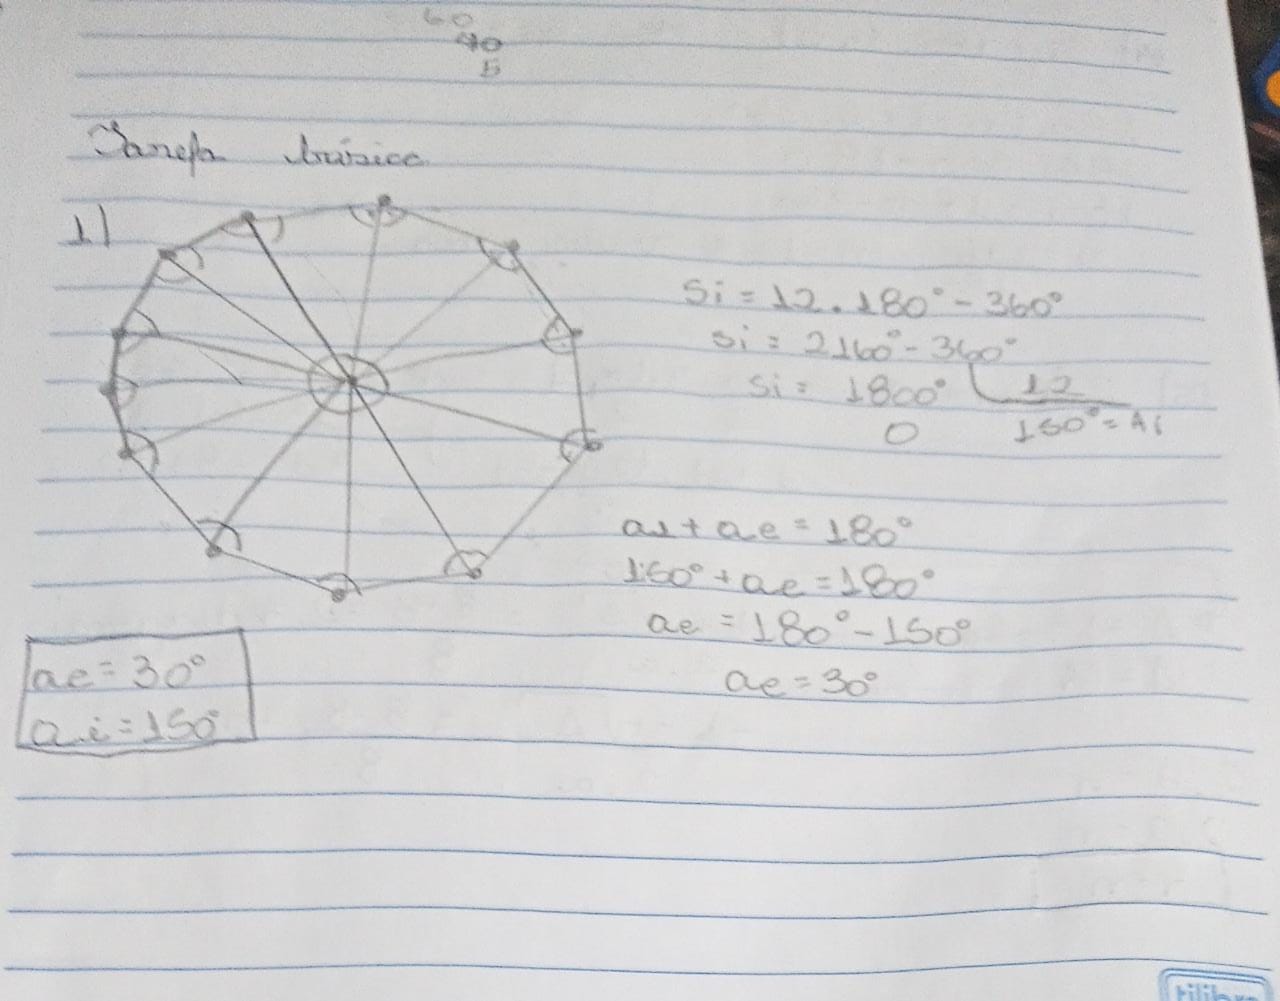 60
40
5
Tarefa básica
1)
Si = 12.180° - 360°
Si = 2160° - 360°
Si = 1800° 12
0 150° = Ai
ai + ae = 180°
150° + ae = 180°
ae = 180° - 150°
ae = 30°
ae = 30°
ai = 150°
tilibra